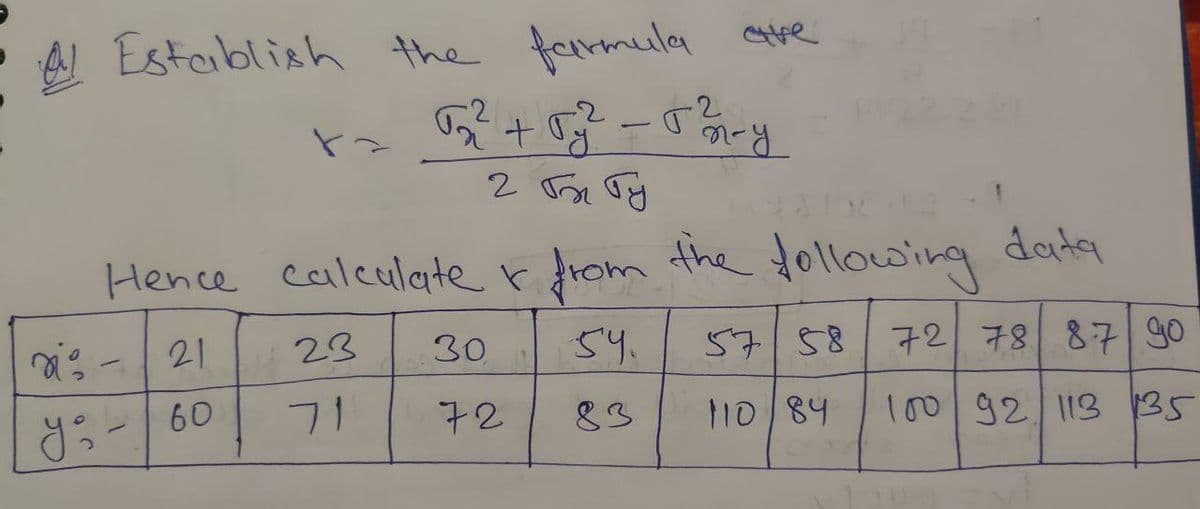 Q) Establish the farmula
r = σx² + σy² - σ²x-y
2 σx σy
Hence calculate r from the following data
x:- 21 23 30 54. 57 58 72 78 87 90
y:- 60 71 72 83 110 84 100 92 113 135